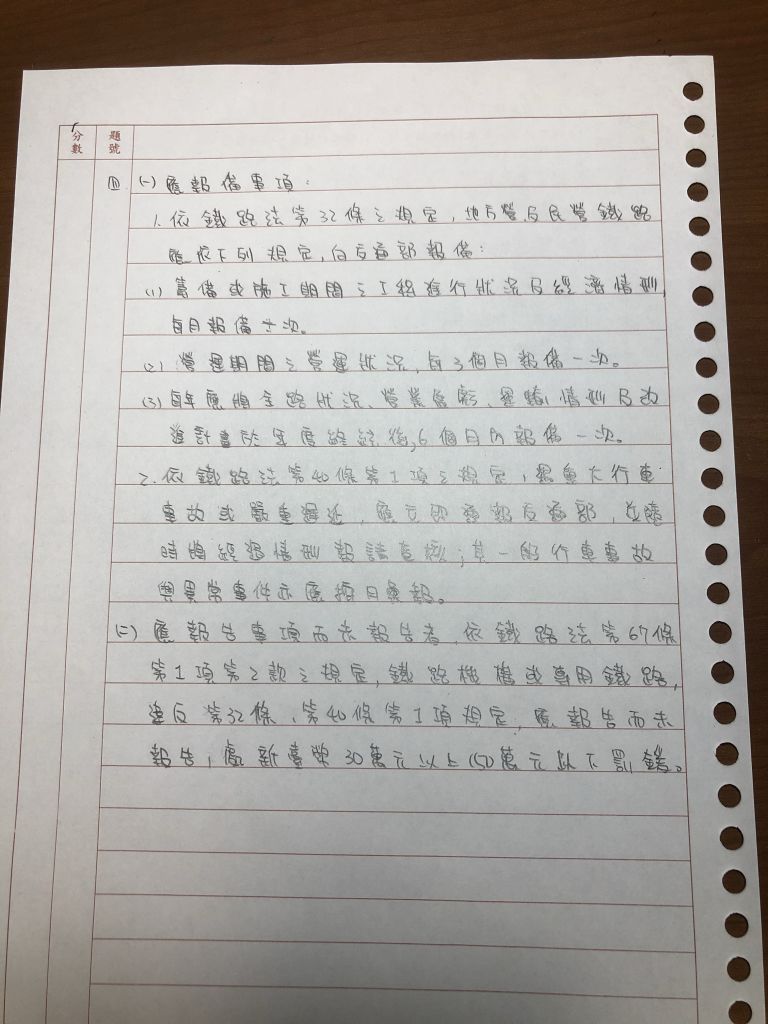 分數 題號
四 (一) 應報備事項：
1. 依鐵路法第32條之規定，地方營及民營鐵路
應依下列規定，向交通部報備：
(1) 籌備或施工期間之工程進行狀況及經濟情形，
每月報備一次。
(2) 營運期間之營運狀況，每3個月報備一次。
(3) 每年應將全路狀況、營業盈虧、運輸情形及改
進計畫於年度終結後，6個月內報備一次。
2. 依鐵路法第40條第1項之規定，遇重大行車
事故或嚴重遲延，應立即通報交通部，並隨
時將經過情形報請查核；其一般行車事故
與異常事件亦應按月彙報。
(二) 應報告事項而未報告者，依鐵路法第67條
第1項第2款之規定，鐵路機構或專用鐵路，
違反第32條、第40條第1項規定，應報告而未
報告，處新臺幣30萬元以上150萬元以下罰鍰。